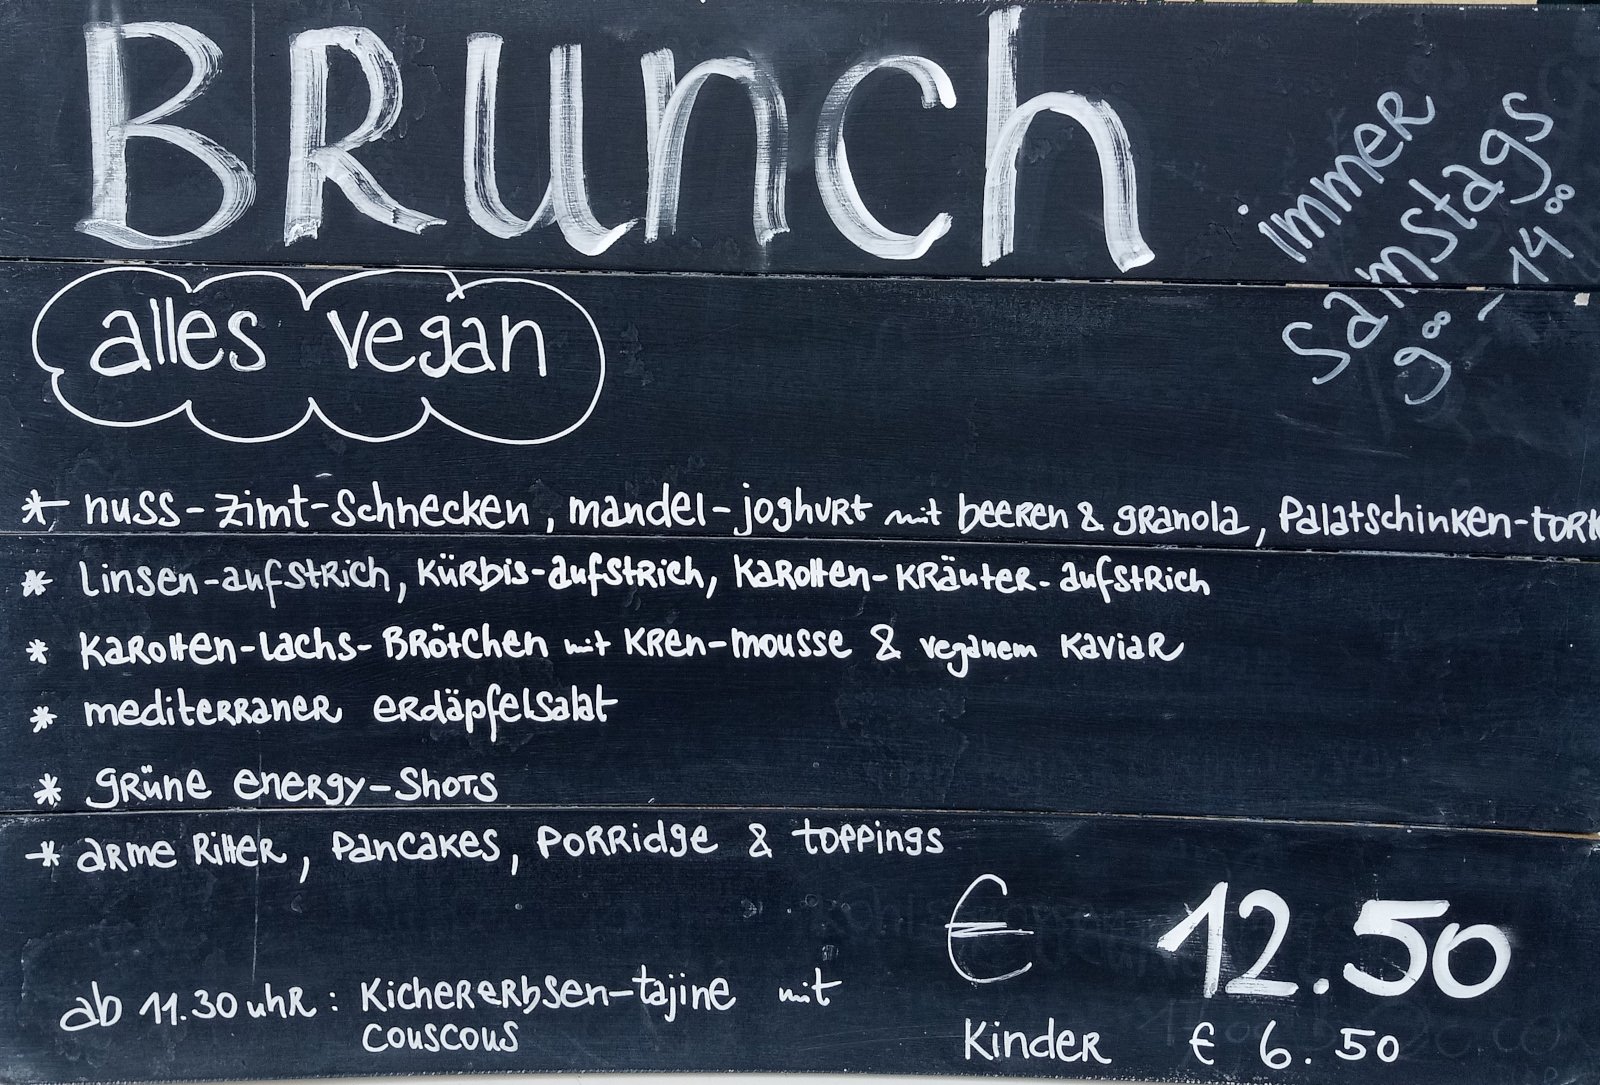 BRunch
immer
Samstags
9⁰⁰ - 14⁰⁰
alles vegan
* nuss-Zimt-Schnecken, mandel-joghurt mit beeren & granola, Palatschinken-tor
* Linsen-aufstrich, Kürbis-aufstrich, Karotten-Kräuter-aufstrich
* Karotten-Lachs-Brötchen mit Kren-mousse & veganem Kaviar
* mediterraner erdäpfelsalat
* grüne energy-Shots
* arme Ritter, pancakes, porridge & toppings
€ 12.50
ab 11.30 uhr: Kichererbsen-tajine mit
couscous
Kinder € 6.50